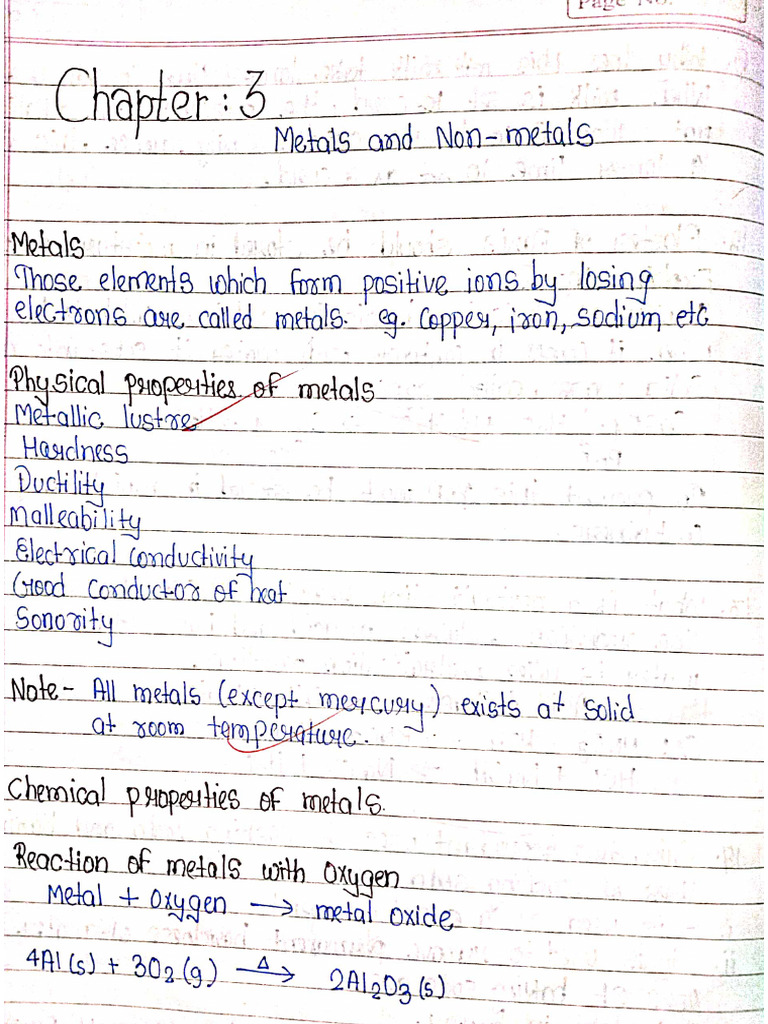 Page No.
Chapter : 3
Metals and Non-metals
Metals
Those elements which form positive ions by losing
electrons are called metals. eg. Copper, iron, sodium etc
Physical properties of metals
Metallic lustre
Hardness
Ductility
Malleability
Electrical conductivity
Good conductor of heat
Sonority
Note- All metals (except mercury) exists at solid
at room temperature.
Chemical properties of metals.
Reaction of metals with oxygen
Metal + oxygen → metal oxide
4Al(s) + 3O₂(g) —Δ→ 2Al₂O₃(s)